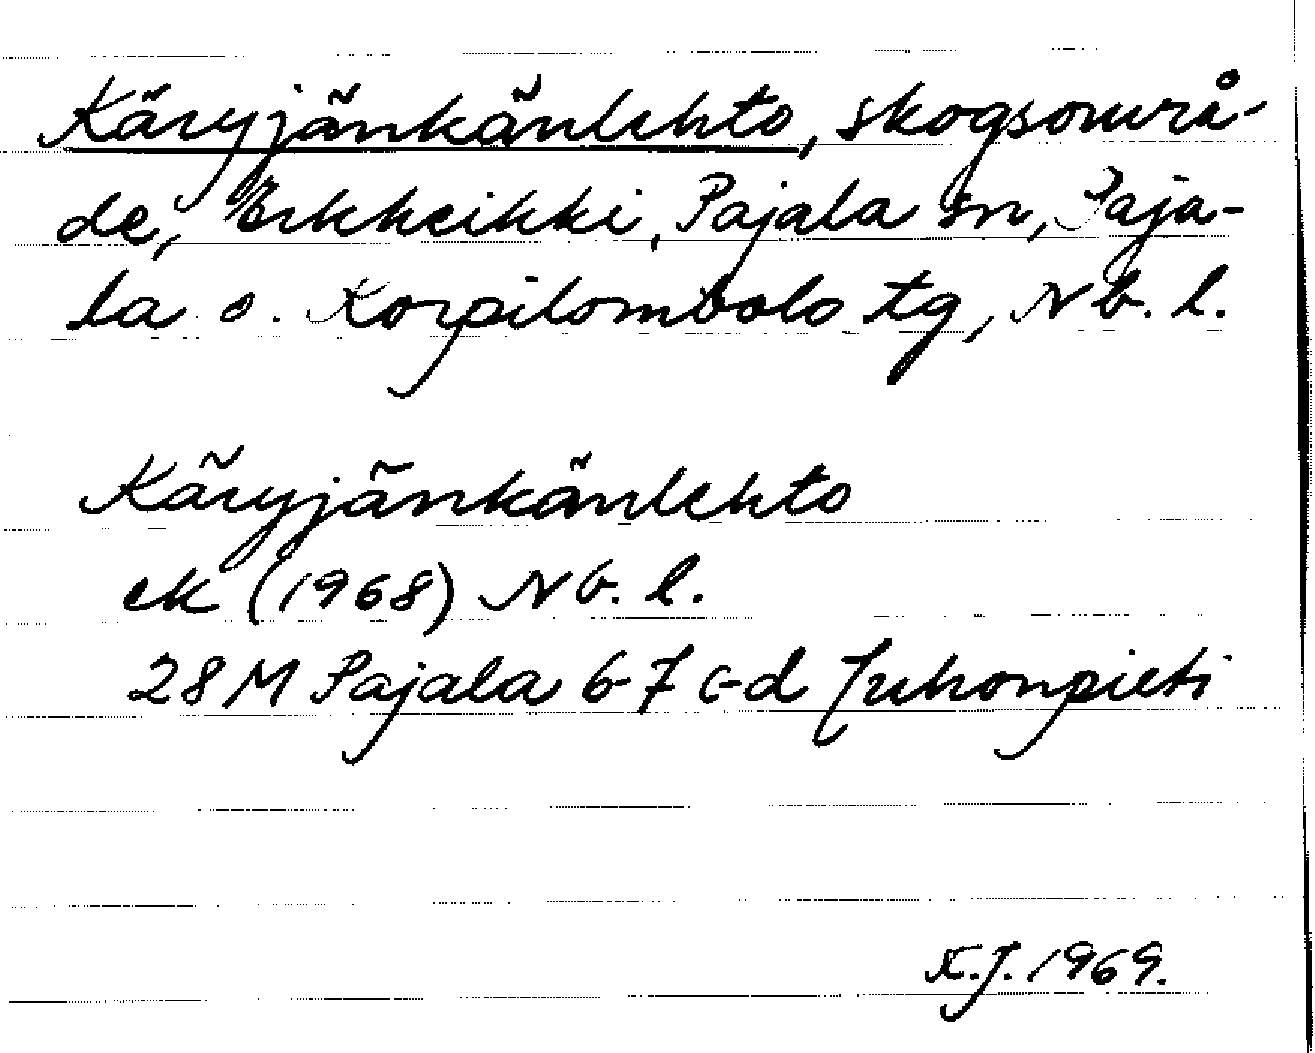 Käryjänkänlehto, skogsområ-
de, Erkheikki, Pajala sn, Paja-
la o. Korpilombolo tg, Nb. l.
Käryjänkänlehto
ek (1968) Nb. l.
28 M Pajala 6-7 c-d Juhonpieti
K.J. 1969.